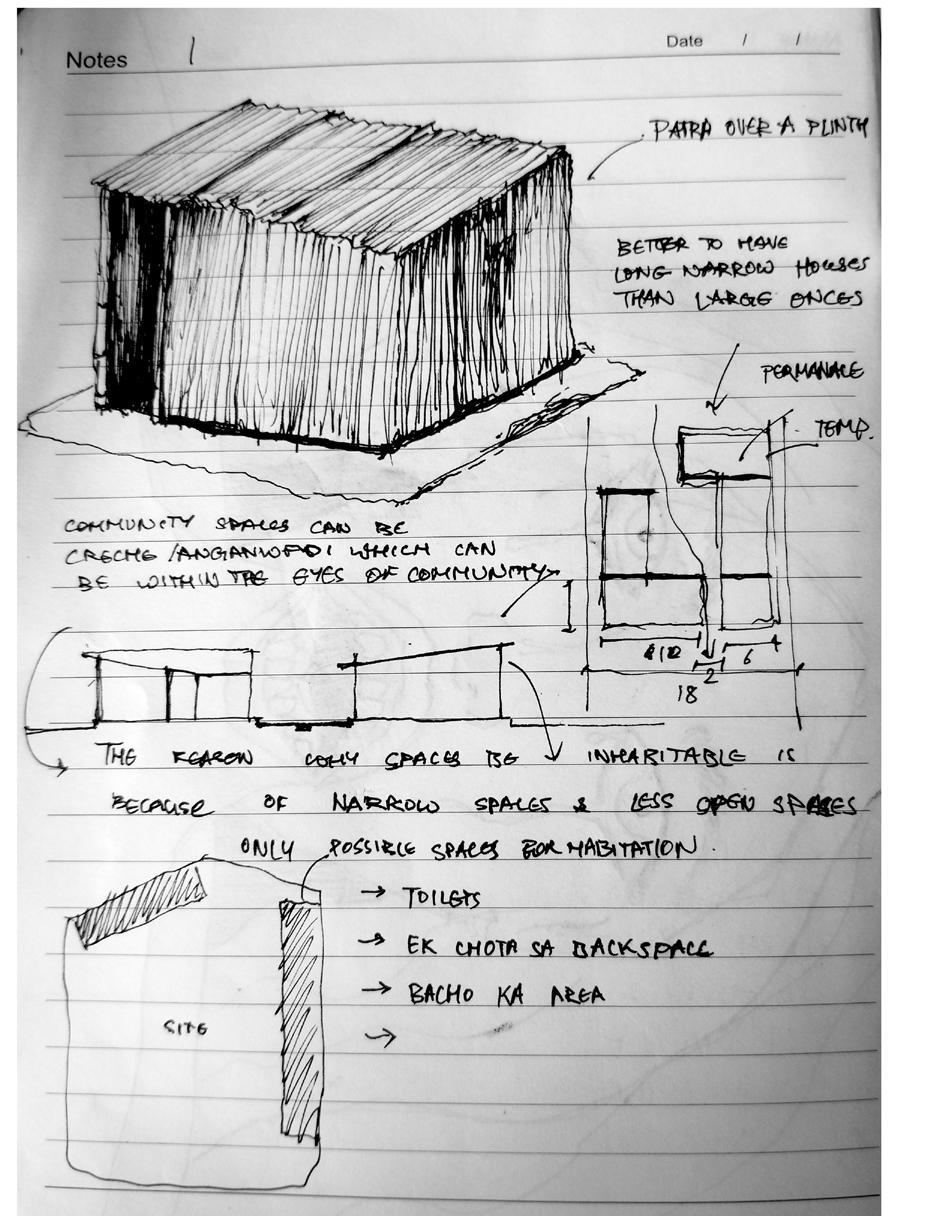 Notes 1
Date / /
PATRA OVER A PLINTH
BETTER TO HAVE
LONG NARROW HOUSES
THAN LARGE ONCES
PERMANALE
TEMP.
COMMUNITY SPACES CAN BE
CRECHE /ANGANWADI WHICH CAN
BE WITHIN THE EYES OF COMMUNITY
2
6
4
18
THE REASON WHY SPACES BE INHABITABLE IS
BECAUSE OF NARROW SPACES & LESS OPEN SPACES
ONLY POSSIBLE SPACES FOR HABITATION.
→ TOILETS
→ EK CHOTA SA BACKSPACE
→ BACHO KA AREA
→
SITE